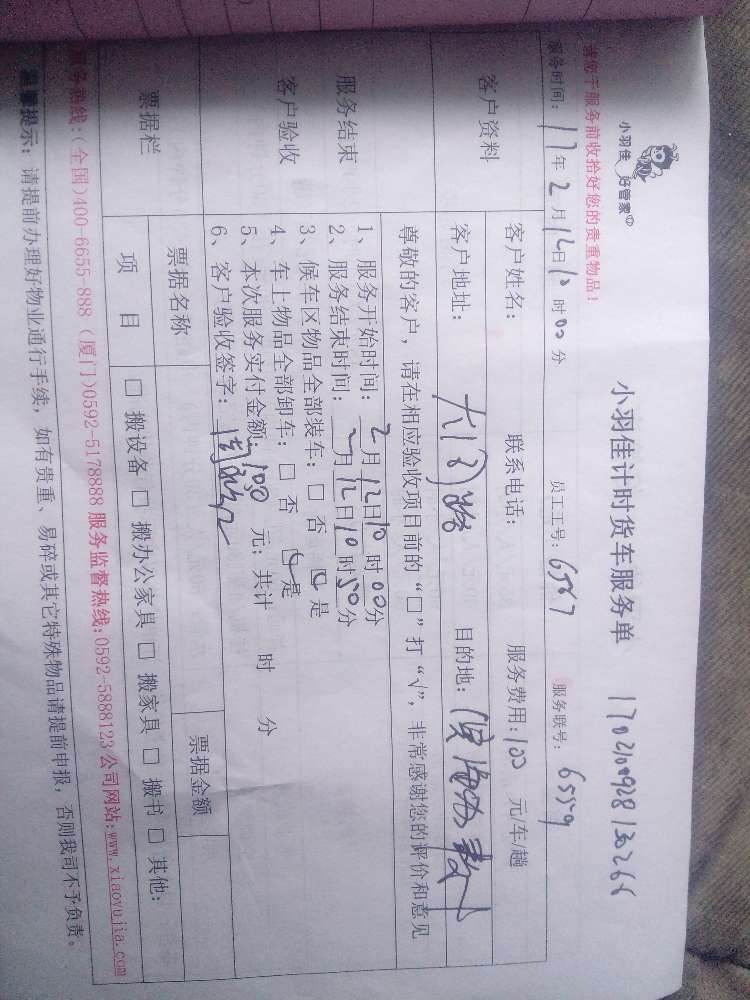 小羽佳 好管家
小羽佳计时货车服务单
请您于服务前收拾好您的贵重物品！
服务时间：17年2月12日10时00分 员工工号：6567 服务联号：6559
客户资料
客户姓名： 联系电话： 服务费用：100 元/车/趟
客户地址： 目的地：
服务结束
客户验收
尊敬的客户，请在相应验收项目前的“□”打“√”，非常感谢您的评价和意见
1、服务开始时间：2月12日10时00分
2、服务结束时间：2月12日10时50分
3、候车区物品全部装车：□ 否 □ 是
4、车上物品全部卸车：□ 否 □ 是
5、本次服务实付金额：100 元；共计 时 分
6、客户验收签字：
票据栏
票据名称 票据金额
项 目 □ 搬设备 □ 搬办公家具 □ 搬家具 □ 搬书 □ 其他：
服务热线：(全国)400-6655-888 (厦门)0592-5178888 服务监督热线：0592-5888123 公司网站：www.xiaoyujia.com
温馨提示：请提前办理好物业通行手续，如有贵重、易碎或其它特殊物品请提前申报，否则我司不予负责。